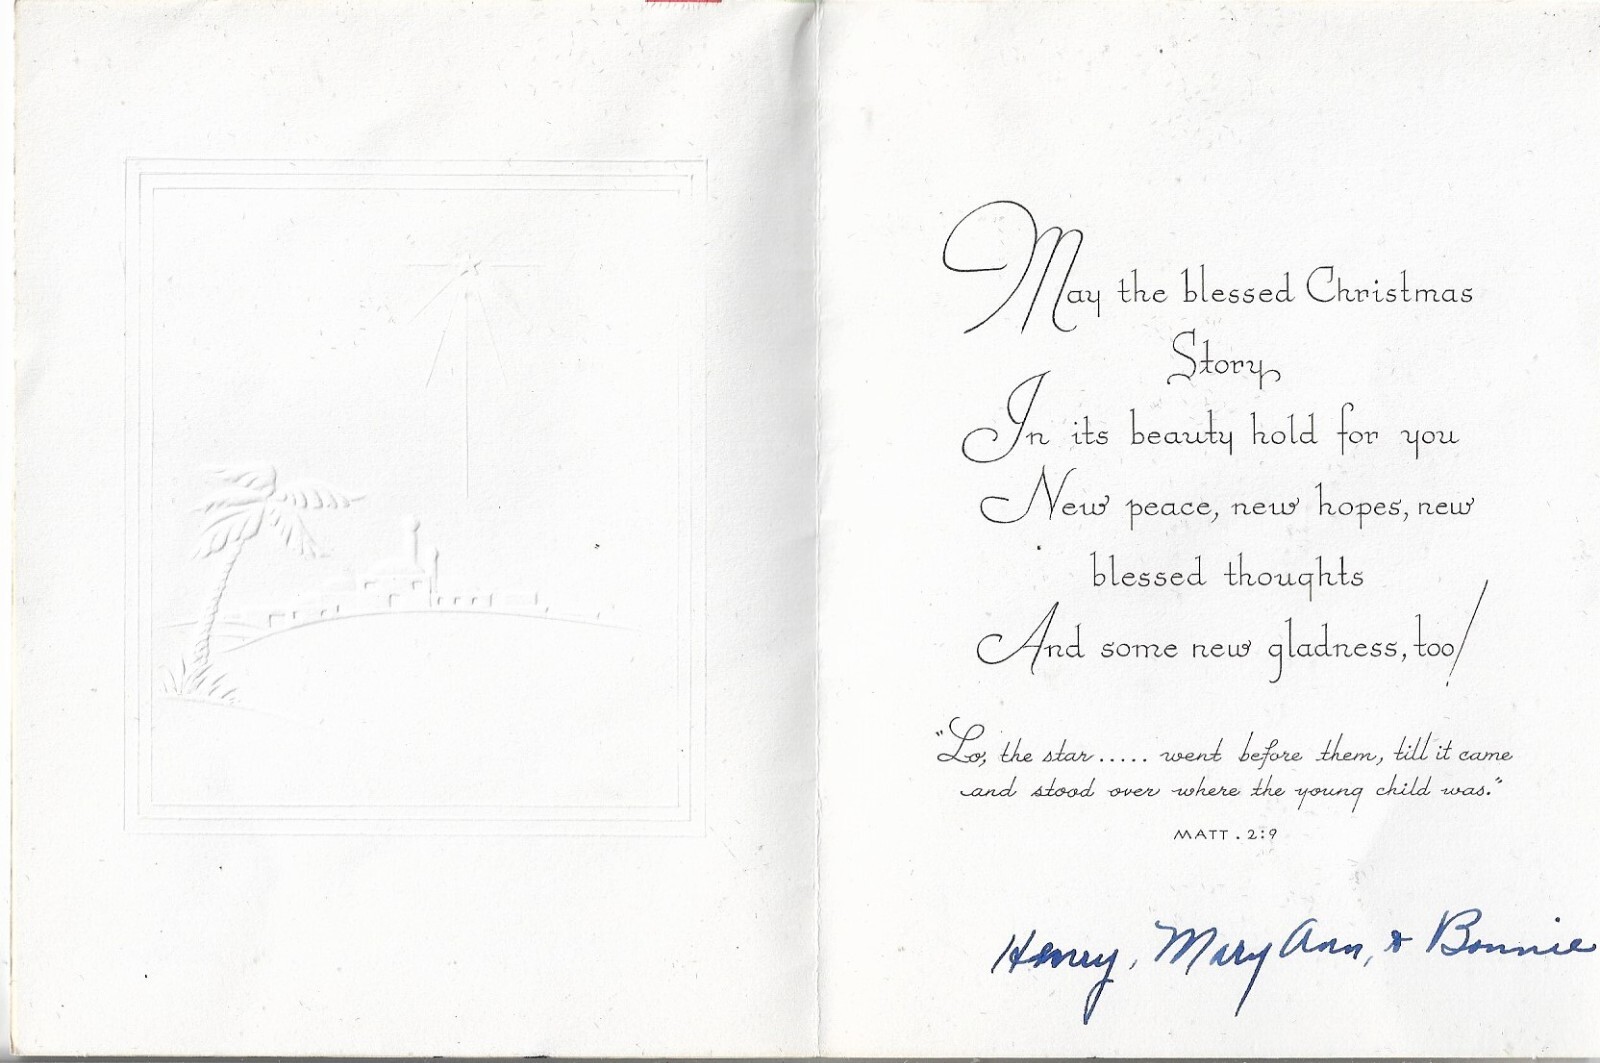 May the blessed Christmas
Story
In its beauty hold for you
New peace, new hopes, new
blessed thoughts
And some new gladness, too!
"Lo, the star..... went before them, till it came
and stood over where the young child was."
MATT. 2:9
Henry, Mary Ann, & Bonnie